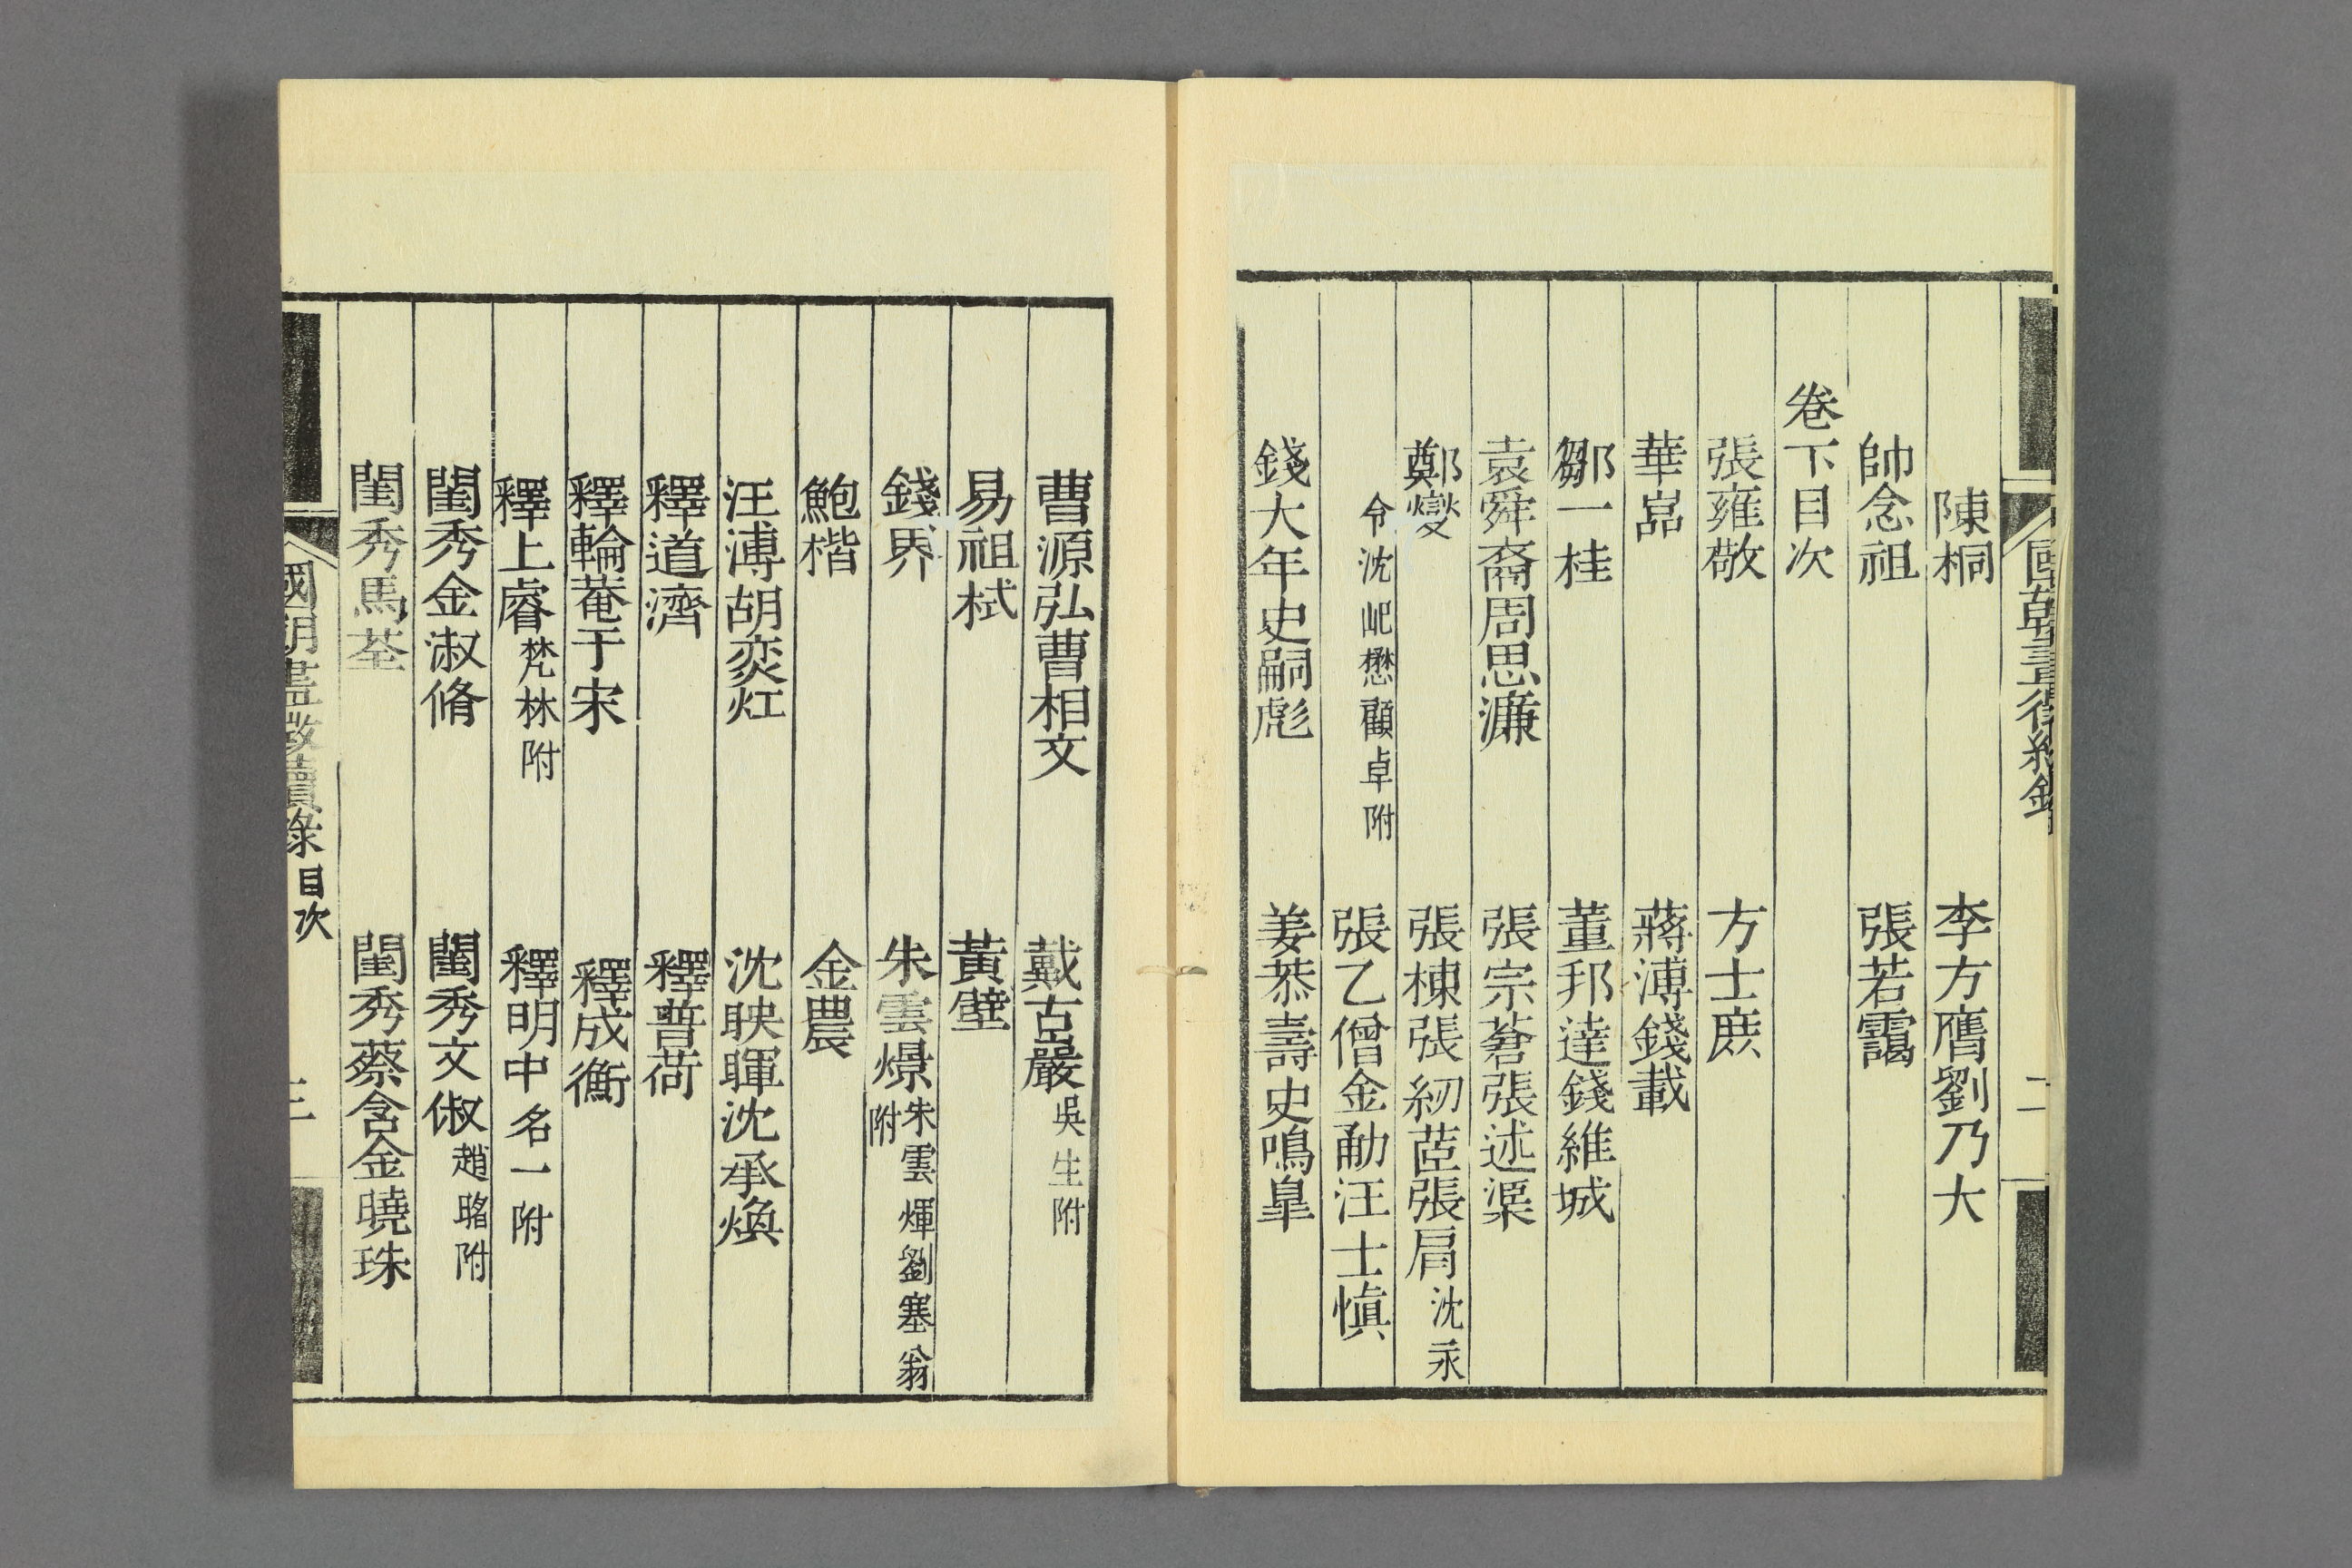 國朝畫徵續錄 二
陳桐 李方膺劉乃大
帥念祖 張若靄
卷下目次
張雍敬 方士庶
華嵒 蔣溥錢載
鄒一桂 董邦達錢維城
袁舜裔周思濂 張宗蒼張述渠
鄭燮 張棟張紉茝張肩沈永
令沈岮懋顧卓附 張乙僧金勈汪士慎
錢大年史嗣彪 姜恭壽史鳴臯
曹源弘曹相文 戴古巖吳生附
易祖栻 黃壁
錢界 朱雲燝朱雲煇劉塞翁附
鮑楷 金農
汪溥胡奕灴 沈映暉沈承煥
釋道濟 釋普荷
釋輪菴于宋 釋成衡
釋上睿梵林附 釋明中名一附
閨秀金淑脩 閨秀文俶趙昭附
閨秀馬荃 閨秀蔡含金曉珠
國朝畫徵續錄目次 三